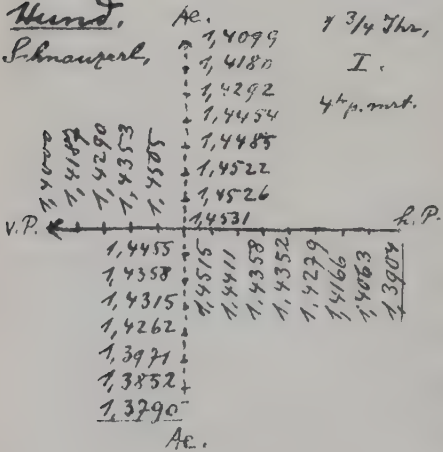 Hund.
Schnauzerl,
Ae.
¾ Jhr,
I.
4h p. mrt.
1,4099
1,4180
1,4292
1,4454
1,4485
1,4522
1,4526
1,4531
v.P.
1,4290
1,4353
1,4505
h.P.
1,4455
1,4358
1,4315
1,4262
1,3971
1,3852
1,3790
1,4515
1,4411
1,4358
1,4352
1,4279
1,4166
1,4063
1,3904
Ae.